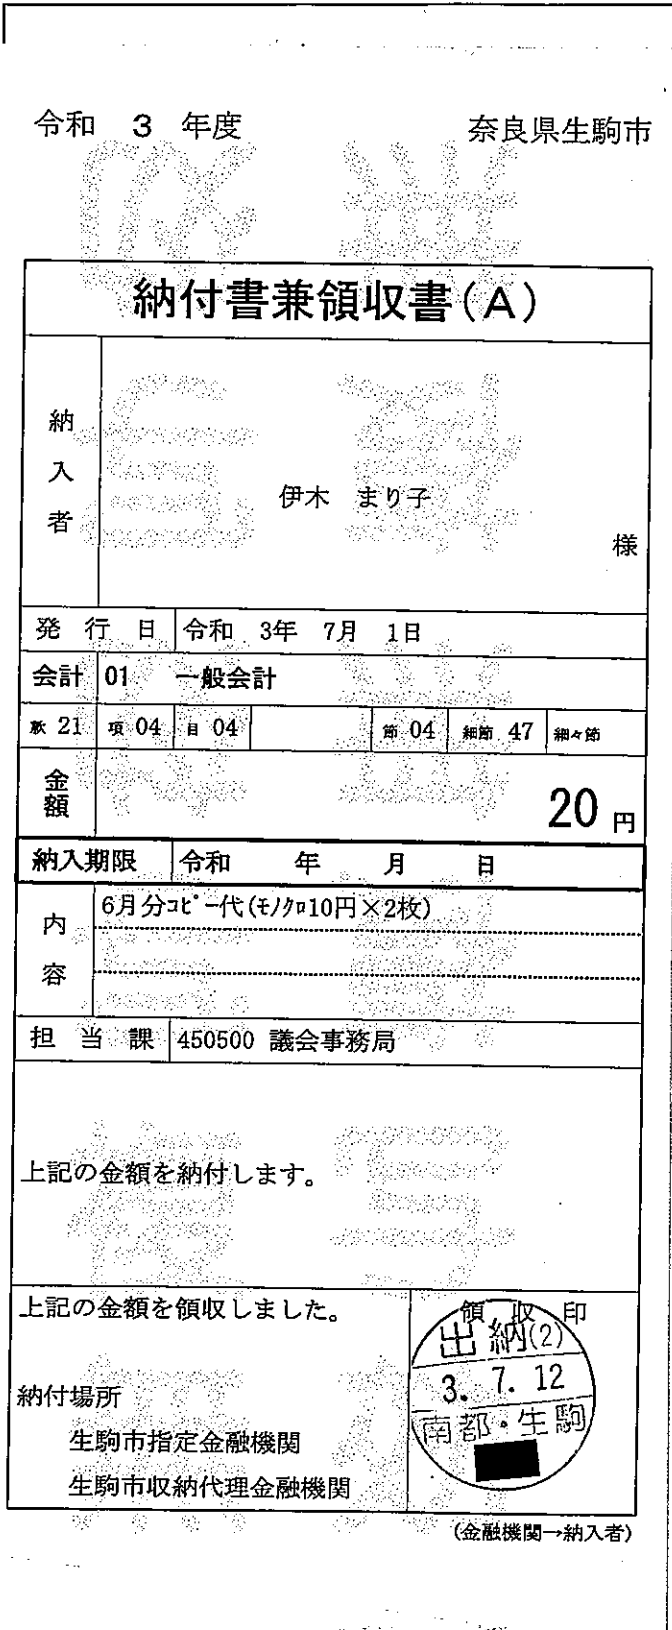 令和 3 年度 奈良県生駒市
納付書兼領収書(A)
納入者 伊木 まり子 様
発行日 令和 3年 7月 1日
会計 01 一般会計
款 21 項 04 目 04 節 04 細節 47 細々節
金額 20 円
納入期限 令和 年 月 日
内容 6月分ｺﾋﾟｰ代(ﾓﾉｸﾛ10円×2枚)
担当課 450500 議会事務局
上記の金額を納付します。
上記の金額を領収しました。
領収印
出納(2)
3. 7. 12
南都・生駒
納付場所
生駒市指定金融機関
生駒市収納代理金融機関
(金融機関→納入者)